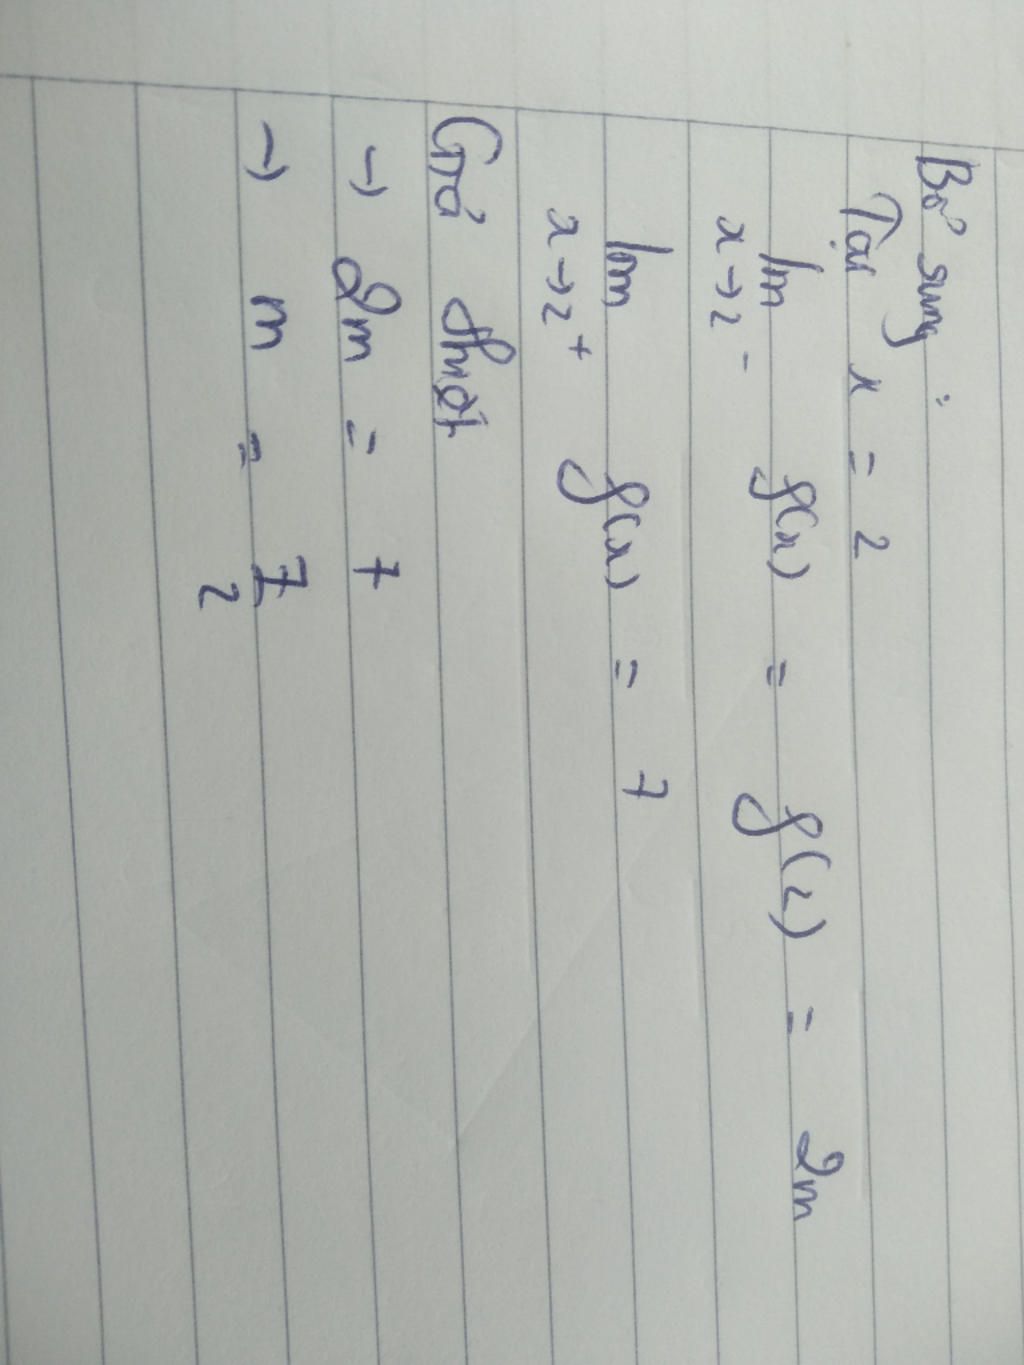 Bổ sung :
Tại x = 2
lim f(x) = f(2) = 2m
x→2⁻
lim f(x) = 7
x→2⁺
Giả thiết
→ 2m = 7
→ m = 7/2